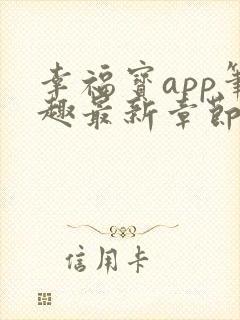 幸福宝app笔
趣最新章节
信用卡